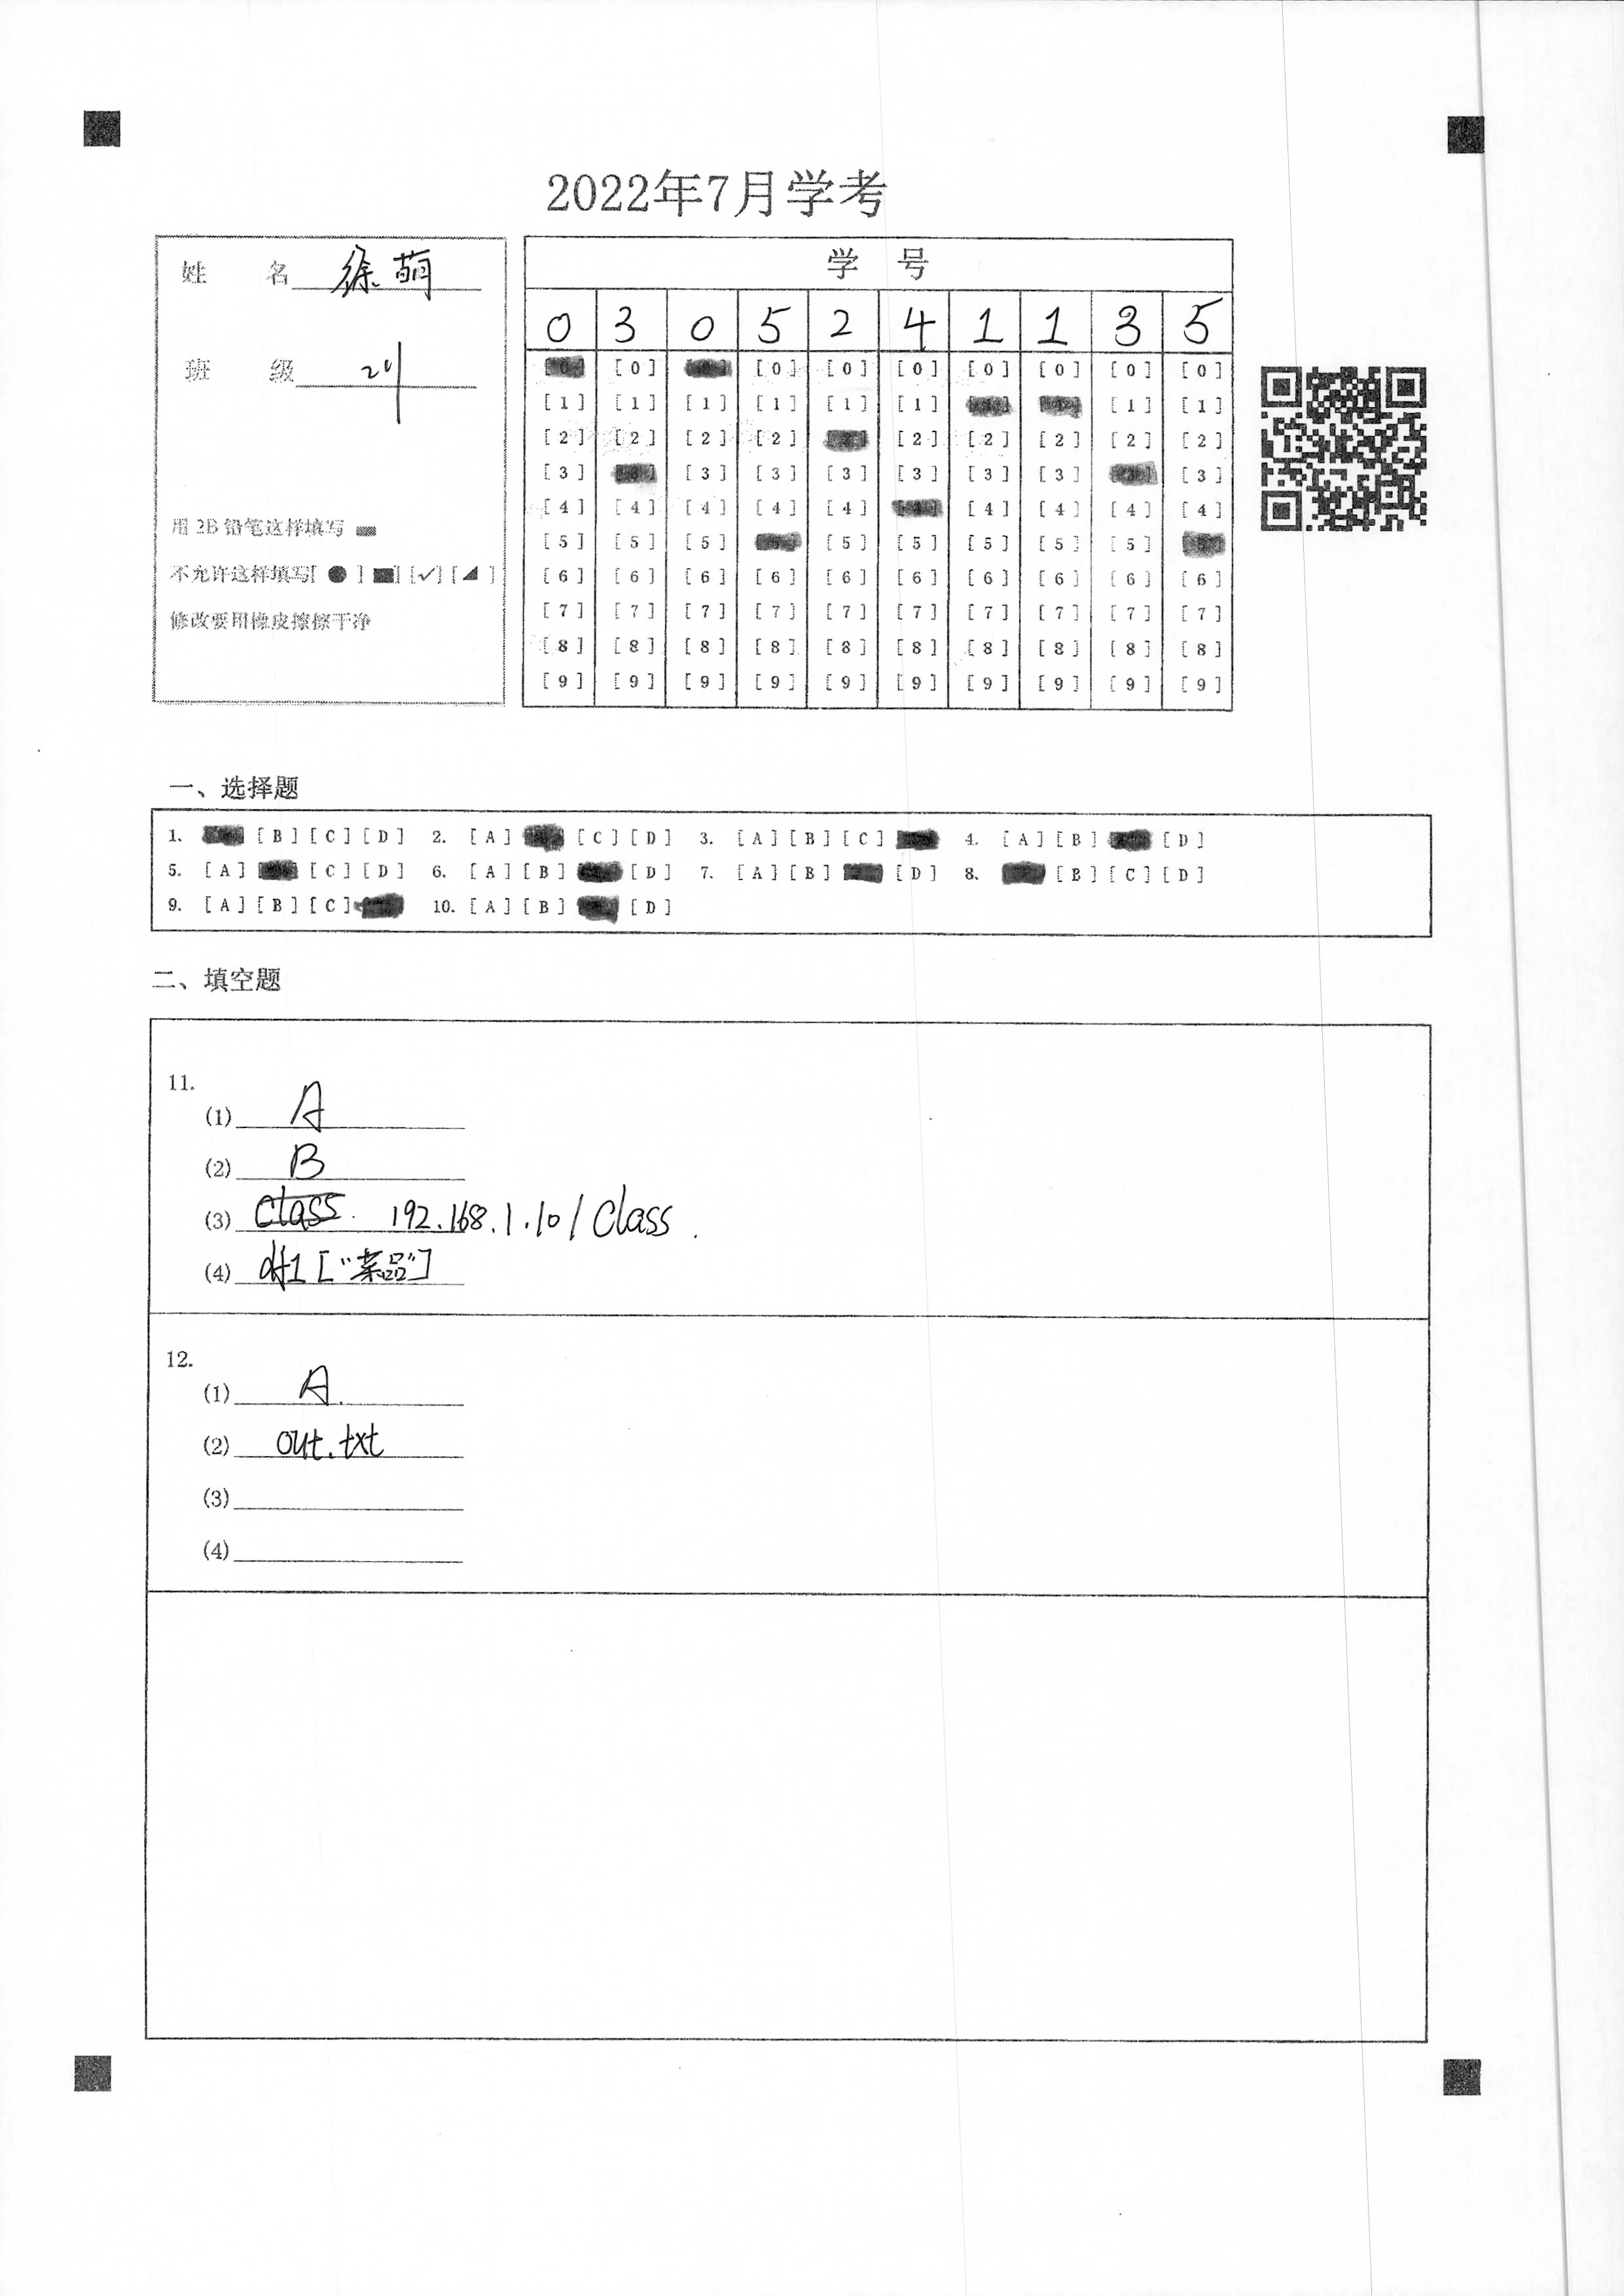 2022年7月学考
姓 名 徐萌
班 级
用 2B 铅笔这样填写
不允许这样填写[ ● ] [■] [✓] [◢ ]
修改要用橡皮擦擦干净
学 号
0 3 0 5 2 4 1 1 3 5
[0] [0] [0] [0] [0] [0] [0] [0] [0] [0]
[1] [1] [1] [1] [1] [1] [1] [1] [1] [1]
[2] [2] [2] [2] [2] [2] [2] [2] [2] [2]
[3] [3] [3] [3] [3] [3] [3] [3] [3] [3]
[4] [4] [4] [4] [4] [4] [4] [4] [4] [4]
[5] [5] [5] [5] [5] [5] [5] [5] [5] [5]
[6] [6] [6] [6] [6] [6] [6] [6] [6] [6]
[7] [7] [7] [7] [7] [7] [7] [7] [7] [7]
[8] [8] [8] [8] [8] [8] [8] [8] [8] [8]
[9] [9] [9] [9] [9] [9] [9] [9] [9] [9]
一、选择题
1. [B] [C] [D] 2. [A] [C] [D] 3. [A] [B] [C] 4. [A] [B] [D]
5. [A] [C] [D] 6. [A] [B] [D] 7. [A] [B] [D] 8. [B] [C] [D]
9. [A] [B] [C] 10. [A] [B] [D]
二、填空题
11.
(1) A
(2) B
(3) class. 192.168.1.10/class.
(4) df1["菜品"]
12.
(1) A.
(2) out.txt
(3)
(4)